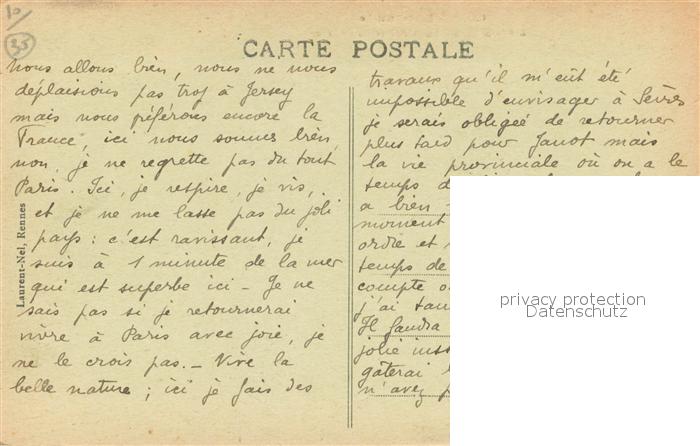 10
35
CARTE POSTALE
nous allons bien, nous ne nous
déplaisions pas trop à Jersey
mais nous préférons encore la
France, ici nous sommes bien,
non, je ne regrette pas du tout
Paris. Ici, je respire, je vis,
et je ne me lasse pas du joli
pays : c'est ravissant, je
suis à 1 minute de la mer
qui est superbe ici – Je ne
sais pas si je retournerai
vivre à Paris avec joie, je
ne le crois pas. – Vive la
belle nature ; ici je fais des
Laurent-Nel, Rennes
travaux qu'il m'eût été
impossible d'envisager à Sèvres
je serais obligée de retourner
plus tard pour Janot mais
la vie provinciale où on a le
temps
a bien
moment
ordre et
temps de
compte
j'ai
Il faudra
jolie
gâterai
n'avez
privacy protection
Datenschutz